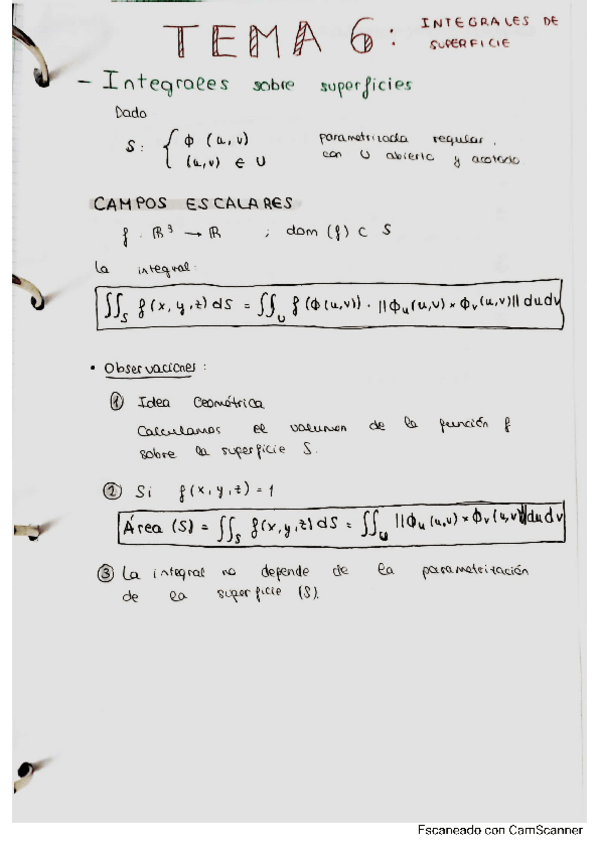 TEMA 6: INTEGRALES DE
SUPERFICIE
- Integrales sobre superficies
Dado
S: { Φ (u,v) parametrizada regular,
(u,v) ∈ U con U abierto y acotado.
CAMPOS ESCALARES
f: ℝ³ → ℝ ; dom (f) ⊂ S
La integral:
∬_S f(x,y,z) dS = ∬_U f(Φ(u,v)) · ||Φ_u(u,v) × Φ_v(u,v)|| du dv
• Observaciones:
① Idea Geométrica
Calculamos el volumen de la función f
sobre la superficie S.
② Si f(x,y,z) = 1
Área (S) = ∬_S f(x,y,z) dS = ∬_U ||Φ_u(u,v) × Φ_v(u,v)|| du dv
③ La integral no depende de la parametrización
de la superficie (S).
Escaneado con CamScanner